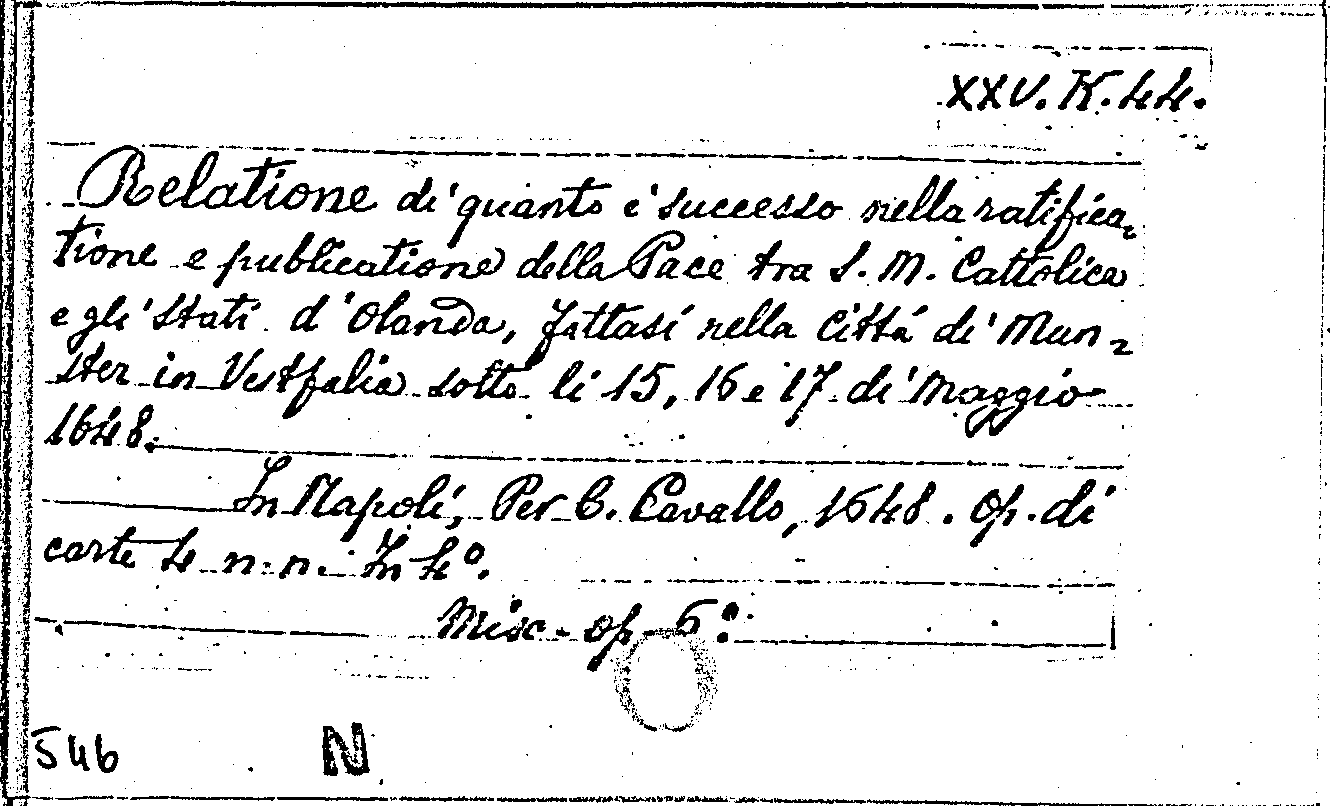 XXV. K. 44.
Relatione di quanto è successo nella ratifica-
tione e publicatione della Pace tra S. M. Cattolica
e gli Stati d'Olanda, fattasi nella Città di Mun-
ster in Vestfalia sotto li 15, 16 e 17 di Maggio
1648.
In Napoli, Per C. Cavallo, 1648. Op. di
carte 4 n. n. In 4º.
Misc. op.
546 N